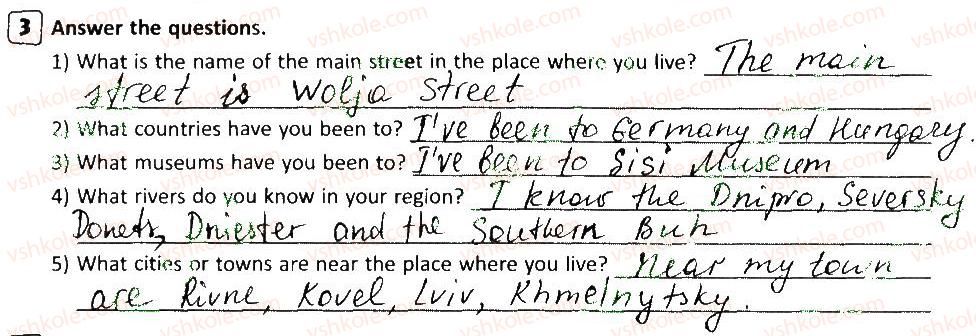 3 Answer the questions.
1) What is the name of the main street in the place where you live? The main
street is Wolja Street
2) What countries have you been to? I've been to Germany and Hungary.
3) What museums have you been to? I've been to Sisi Museum
4) What rivers do you know in your region? I know the Dnipro, Seversky
Donets, Dniester and the Southern Buh
5) What cities or towns are near the place where you live? Near my town
are Rivne, Kovel, Lviv, Khmelnytsky.
vshkole.com